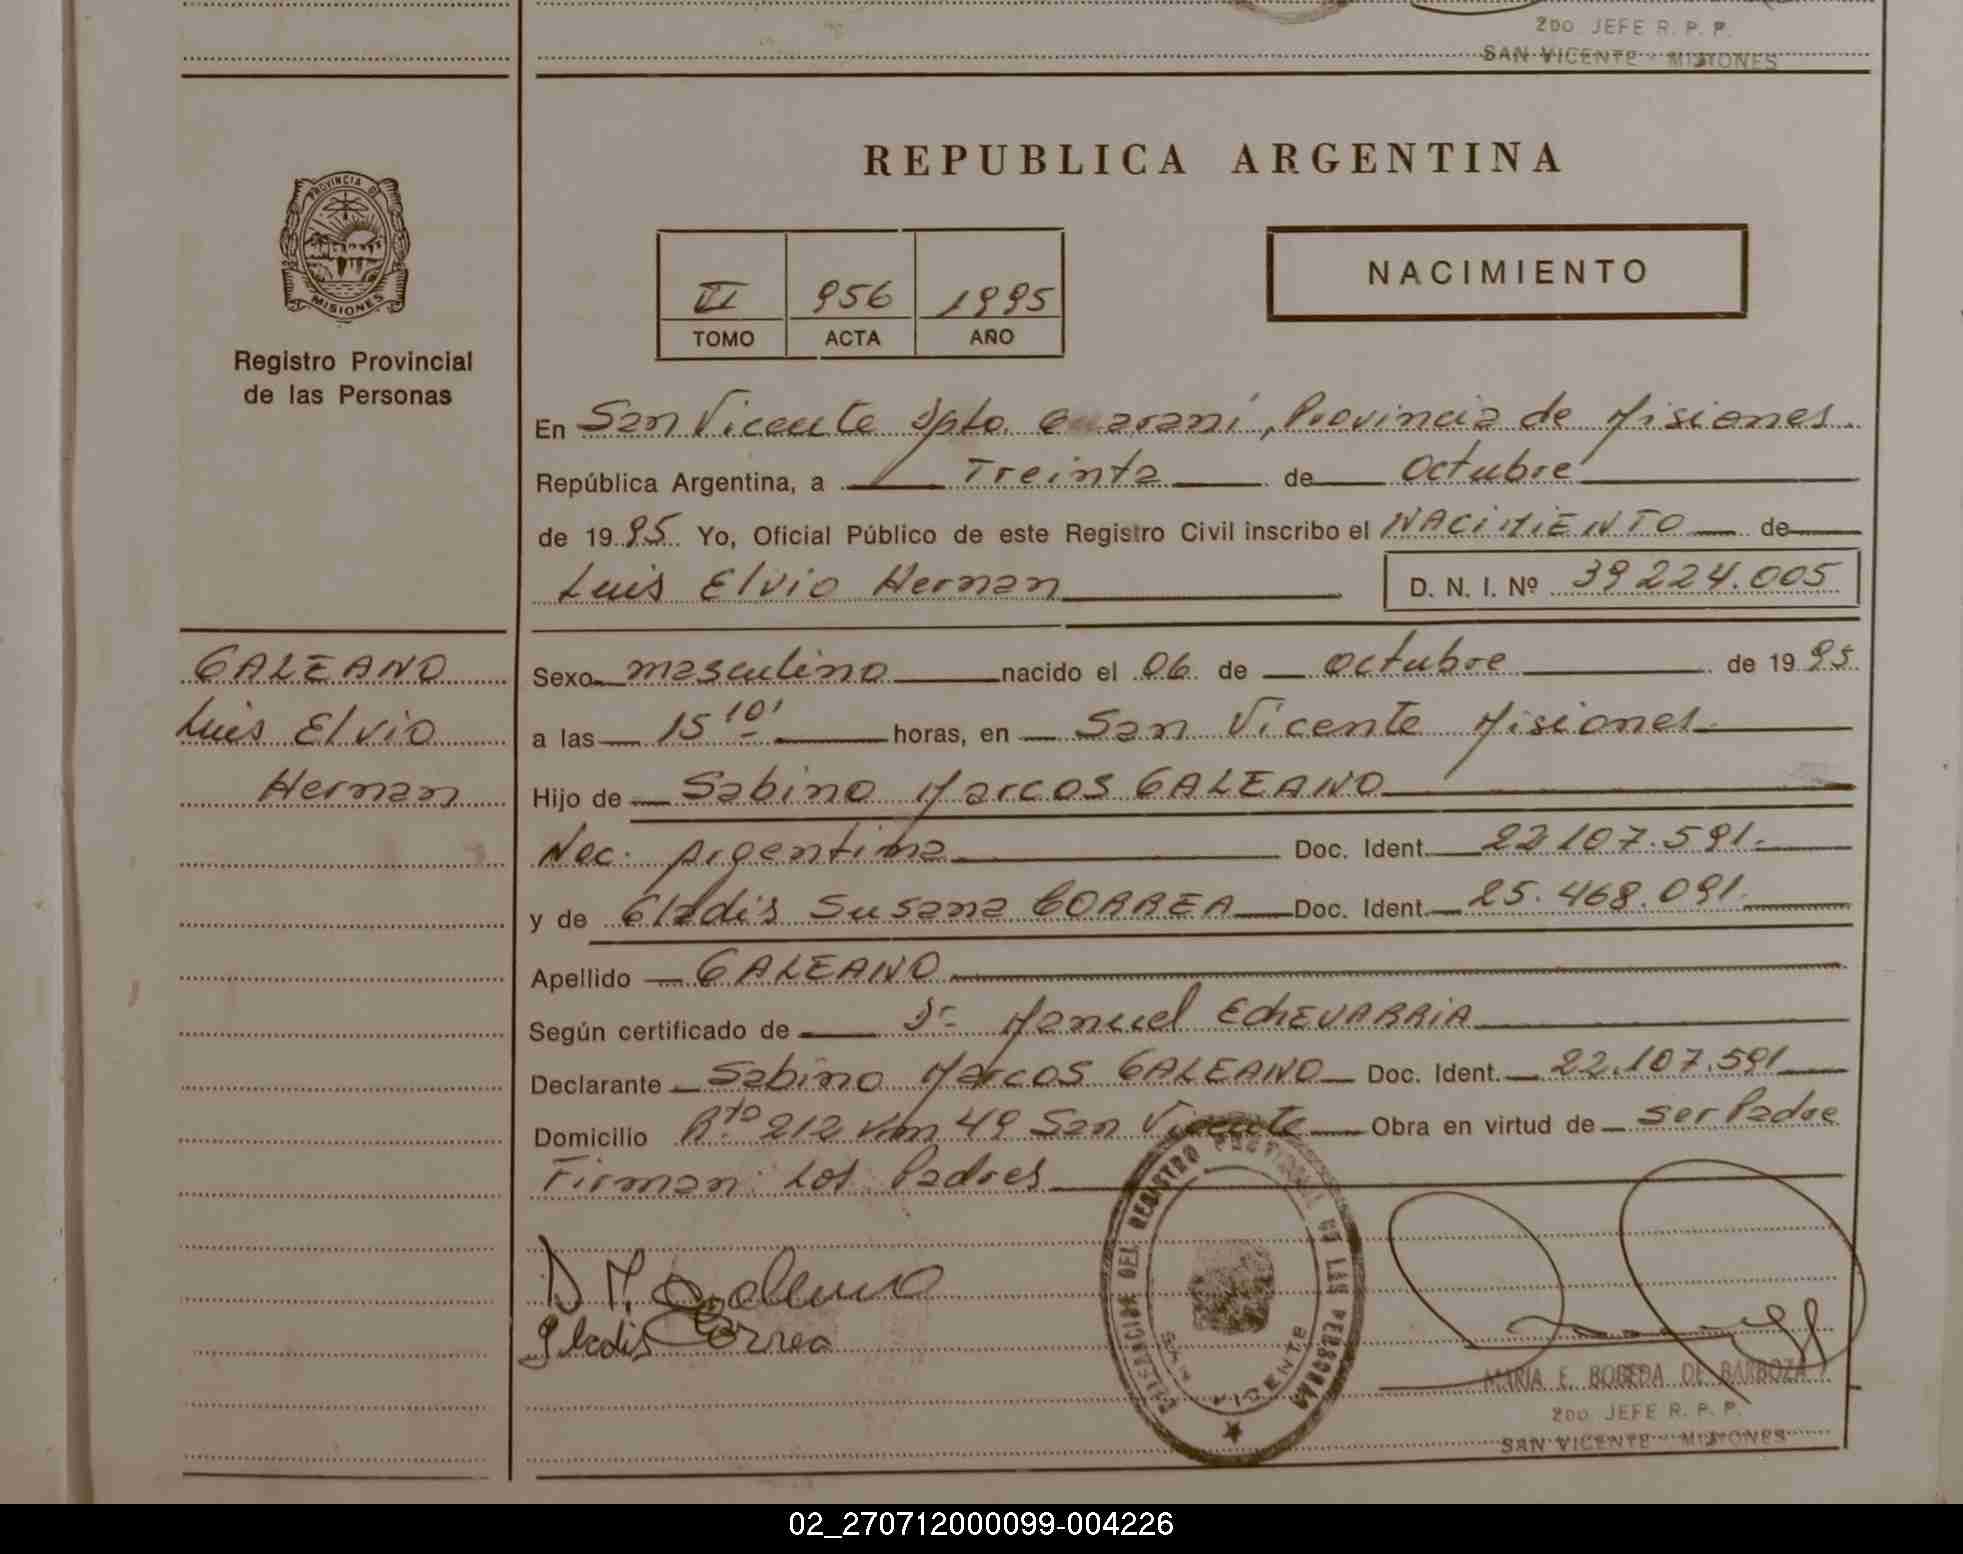 2DO JEFE R. P. P.
SAN VICENTE - MISIONES
PROVINCIA DE
MISIONES
Registro Provincial
de las Personas
REPUBLICA ARGENTINA
VI 956 1995
TOMO ACTA AÑO
NACIMIENTO
En San Vicente Dpto. Guarani, Provincia de Misiones.
República Argentina, a Treinta de Octubre
de 1995 Yo, Oficial Público de este Registro Civil inscribo el NACIMIENTO de
Luis Elvio Hernan D. N. I. Nº 39224.005
GALEANO
Luis Elvio
Hernan
Sexo masculino nacido el 06 de octubre de 1995
a las 15 10' horas, en San Vicente Misiones
Hijo de Sabino Marcos GALEANO
Nac. Argentina Doc. Ident. 22.107.591.
y de Gladis Susana CORREA Doc. Ident. 25.468.091.
Apellido GALEANO
Según certificado de Dr Manuel EchEVARRiA
Declarante Sabino Marcos GALEANO Doc. Ident. 22.107.591
Domicilio Rta 212 Km 49 San Vicente Obra en virtud de ser Padre
Firman: Los Padres
Gladis Correa
DELEGACION DEL REGISTRO PROVINCIAL DE LAS PERSONAS
SAN VICENTE
MARIA E. BOBEDA DE BARBOZA
2DO JEFE R. P. P.
SAN VICENTE - MISIONES
02_270712000099-004226